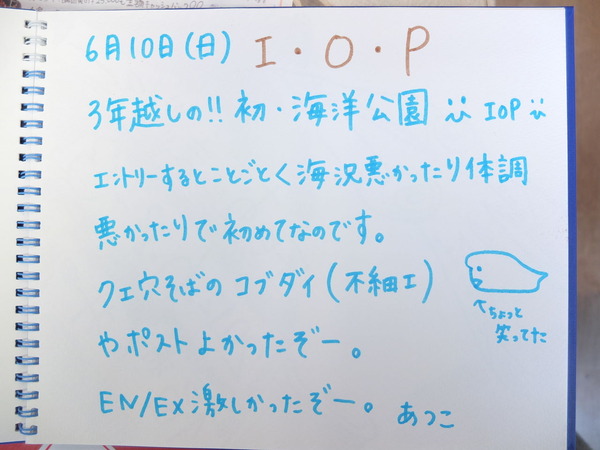 6月10日(日) I・O・P
3年越しの!! 初・海洋公園 IOP
エントリーするとことごとく海況悪かったり体調
悪かったりで初めてなのです。
クエ穴そばのコブダイ(不細工)
↑ちょっと
笑ってた
やポストよかったぞー。
EN/EX激しかったぞー。 あつこ